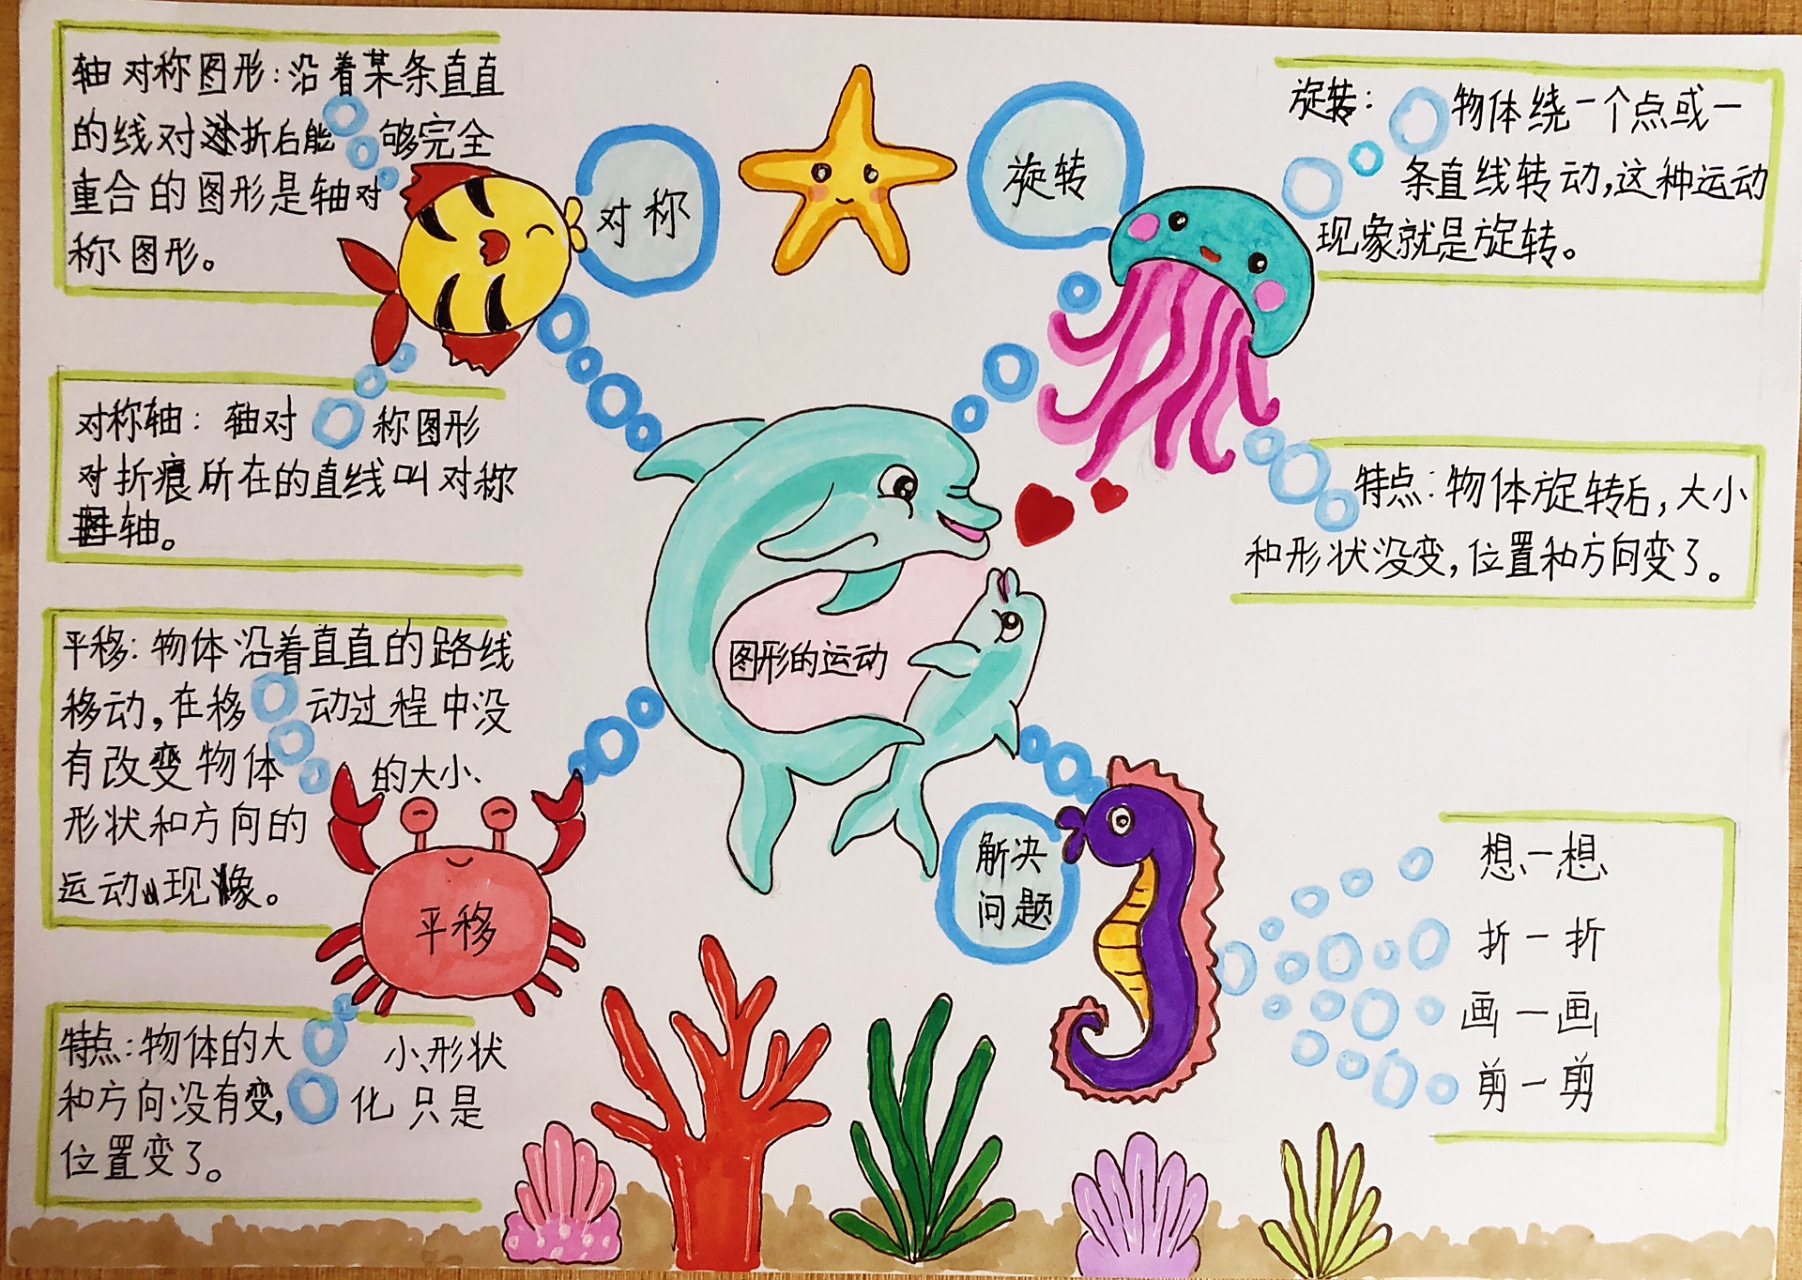 轴对称图形:沿着某条直直
的线对折后能够完全
重合的图形是轴对
称图形。
对称
对称轴:轴对称图形
对折痕所在的直线叫对称
轴。
平移:物体沿着直直的路线
移动,在移动过程中没
有改变物体的大小、
形状和方向的
运动现像。
平移
特点:物体的大小、形状
和方向没有变化,只是
位置变了。
图形的运动
旋转
旋转:物体绕一个点或一
条直线转动,这种运动
现象就是旋转。
特点:物体旋转后,大小
和形状没变,位置和方向变了。
解决
问题
想一想
折一折
画一画
剪一剪